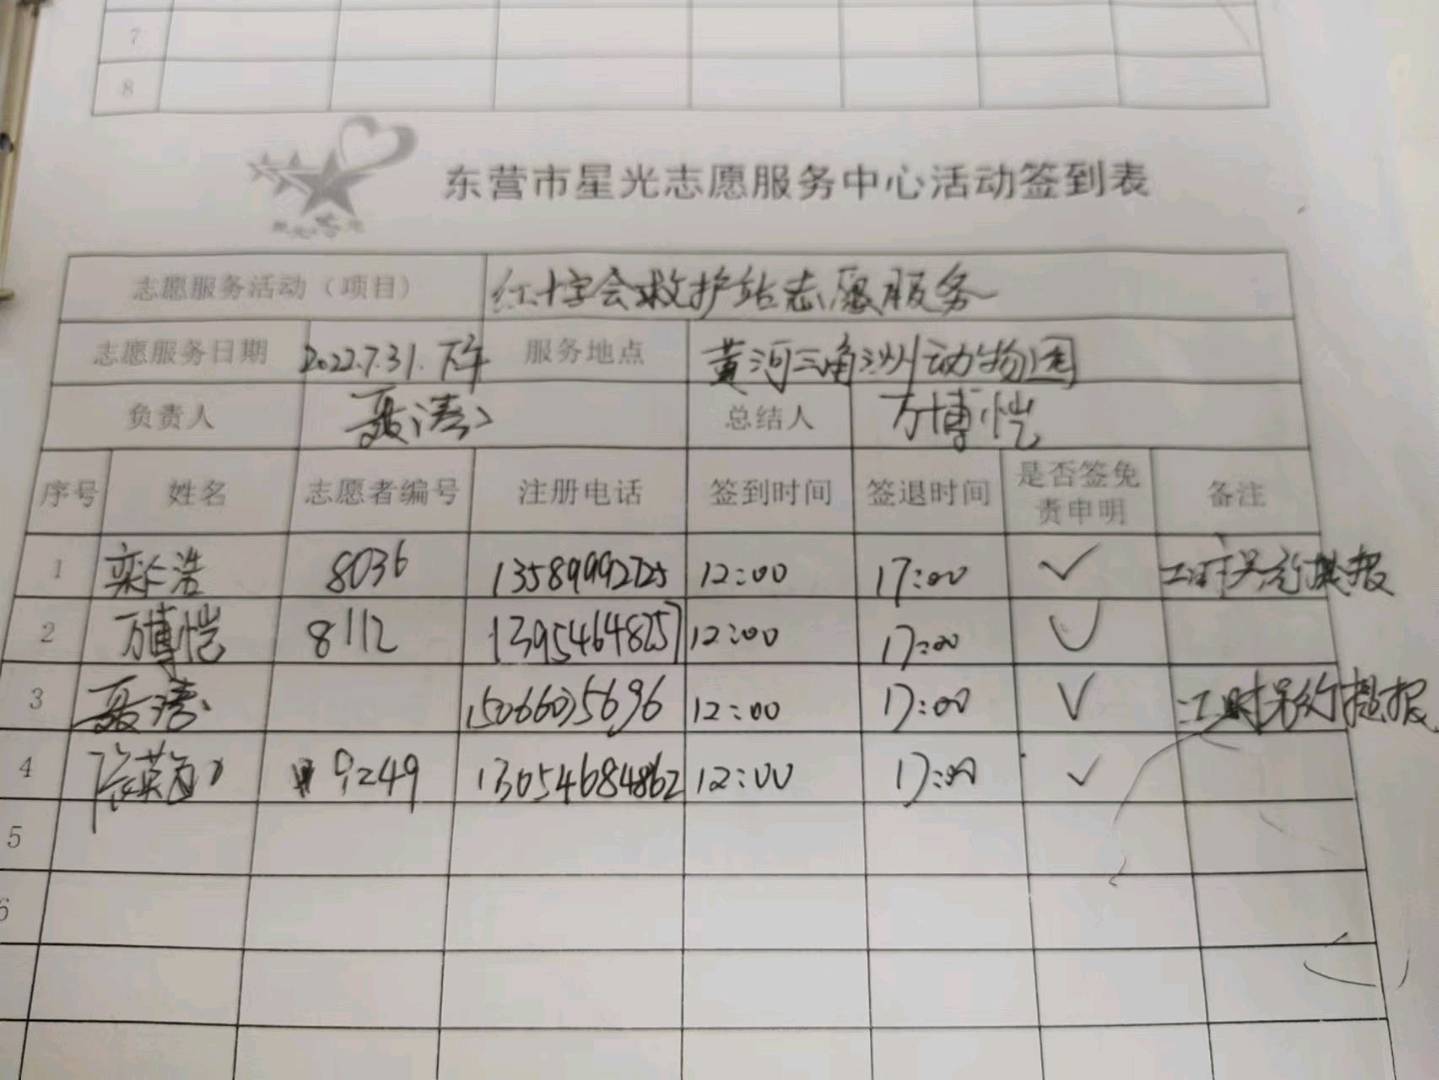 7
8
东营市星光志愿服务中心活动签到表
志愿服务活动（项目） 红十字会救护站志愿服务
志愿服务日期 2022.7.31.下午 服务地点 黄河三角洲动物园
负责人 聂涛 总结人 万博恺
序号 姓名 志愿者编号 注册电话 签到时间 签退时间 是否签免责申明 备注
1 栾仁浩 8036 13589992725 12:00 17:00 ✓ 工时另行提报
2 万博恺 8112 13954648257 12:00 17:00 ✓
3 聂涛 15066035696 12:00 17:00 ✓ 工时另行提报
4 9249 13054684862 12:00 17:00 ✓
5
6